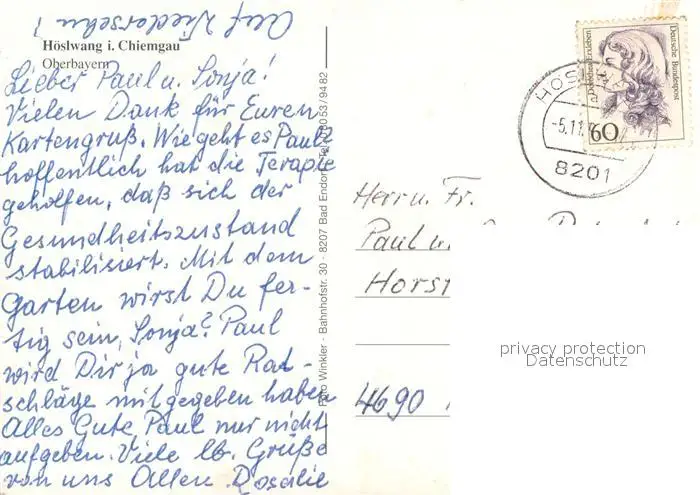 Auf Wiedersehn!
Höslwang i. Chiemgau
Oberbayern
Lieber Paul u. Sonja!
Vielen Dank für Euren
Kartengruß. Wie geht es Paul?
hoffentlich hat die Terapie
geholfen, daß sich der
Gesundheitszustand
stabilisiert. Mit dem
Garten wirst Du fer-
tig sein, Sonja? Paul
wird Dir ja gute Rat-
schläge mitgegeben haben
Alles Gute Paul nur nicht
aufgeben. Viele lb. Grüße
von uns Allen Rosalie
Foto Winkler - Bahnhofstr. 30 - 8207 Bad Endorf
Deutsche Bundespost
60
-5.11.
8201
Herrn u. Fr.
Paul u.
Horst
4690
privacy protection
Datenschutz